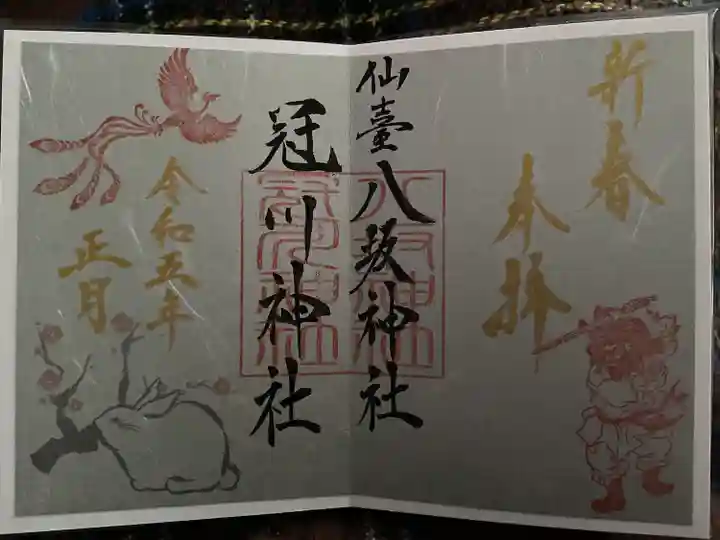 新春
奉拝
仙臺八坂神社
冠川神社
令和五年
正月